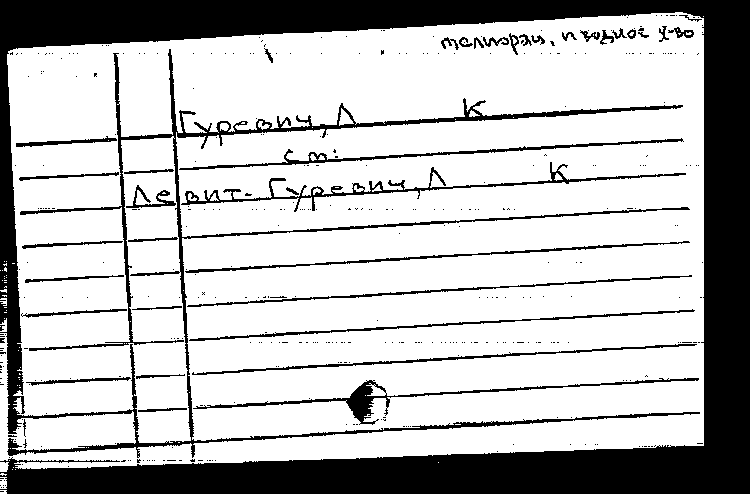 мелиорац. и водное х-во
Гуревич, Л К
см:
Левит-Гуревич, Л К